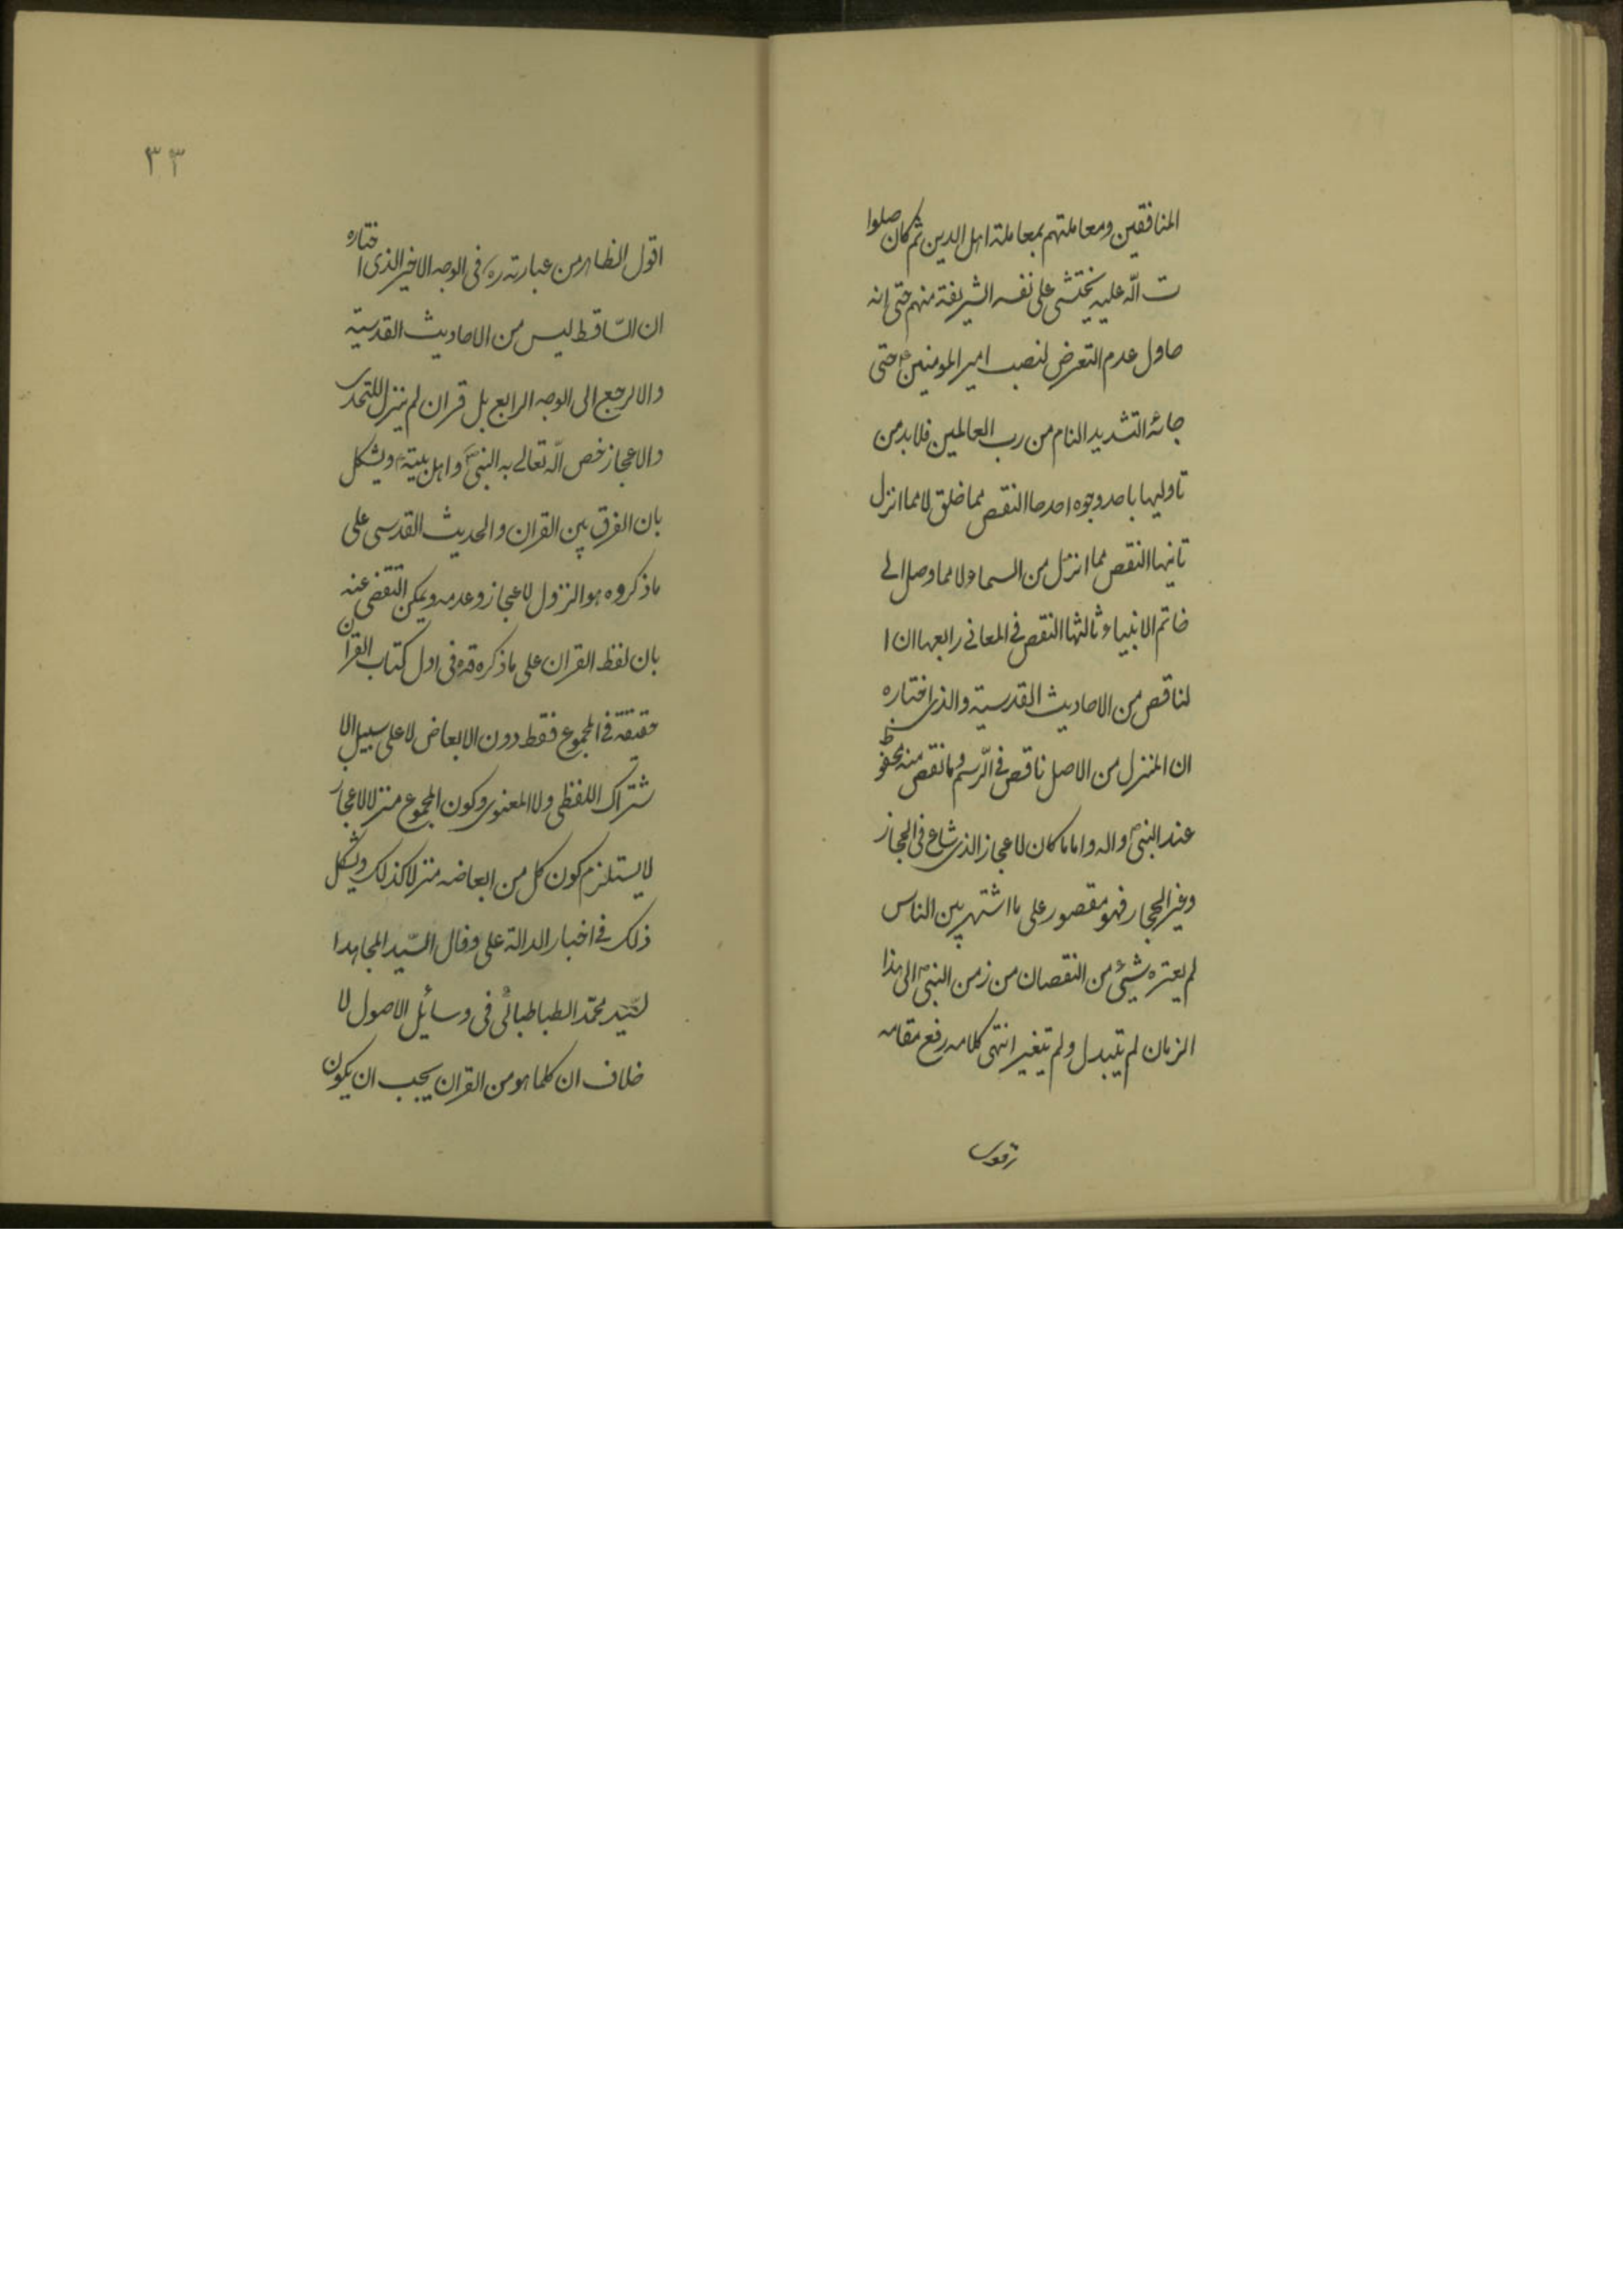 المنافقين ومعاملتهم بمعاملة اهل الدين ثم كان صلوا
ت الله عليه يختشى على نفسه الشريفة منهم حتى انه
حاول عدم التعرض لنصب امير المومنين ع حتى
جائه التشديد التام من رب العالمين فلابد من
تاويلها باحد وجوه احدها النقص مما خلق لا مما انزل
ثانيها النقص مما انزل من السماء لا مما وصل الى
خاتم الانبياء و ثالثها النقص فى المعانى رابعها ان ا
لناقص من الاحاديث القدسية والذى اختاره
ان المنزل من الاصل ناقص فى الرسم وما نقص منه محفوظ
عند النبى ص واله واما ما كان للاعجاز الذى شاع فى الحجاز
وغير الحجاز فهو مقصور على ما اشتهر بين الناس
لم يعتره شيئ من النقصان من زمن النبى ص الى هذا
الزمان لم يتبدل ولم يتغير انتهى كلامه رفع مقامه
٣٣
اقول الظاهر من عبارته ره فى الوجه الاخير الذى اختاره
ان الساقط ليس من الاحاديث القدسية
والا لرجع الى الوجه الرابع بل قران لم ينزل للتحدى
والاعجاز خص الله تعالى به النبى ص واهل بيته ع ويشكل
بان الفرق بين القران والحديث القدسى على
ماذكروه هو النزول للاعجاز وعدمه ويمكن التفصى عنه
بان لفظ القران على ماذكره قده فى اول كتاب القرآن
حقيقة فى المجموع فقط دون الابعاض لا على سبيل الا
شتراك اللفظى ولا المعنوى وكون المجموع منزلا للاعجاز
لا يستلزم كون كل من ابعاضه منزلا كذلك ويشكل
ذلك فى اخبار الدالة على وقال السيد المجاهد ا
لسيد محمد الطباطبائى فى وسائل الاصول لا
خلاف ان كلما هو من القران يجب ان يكون